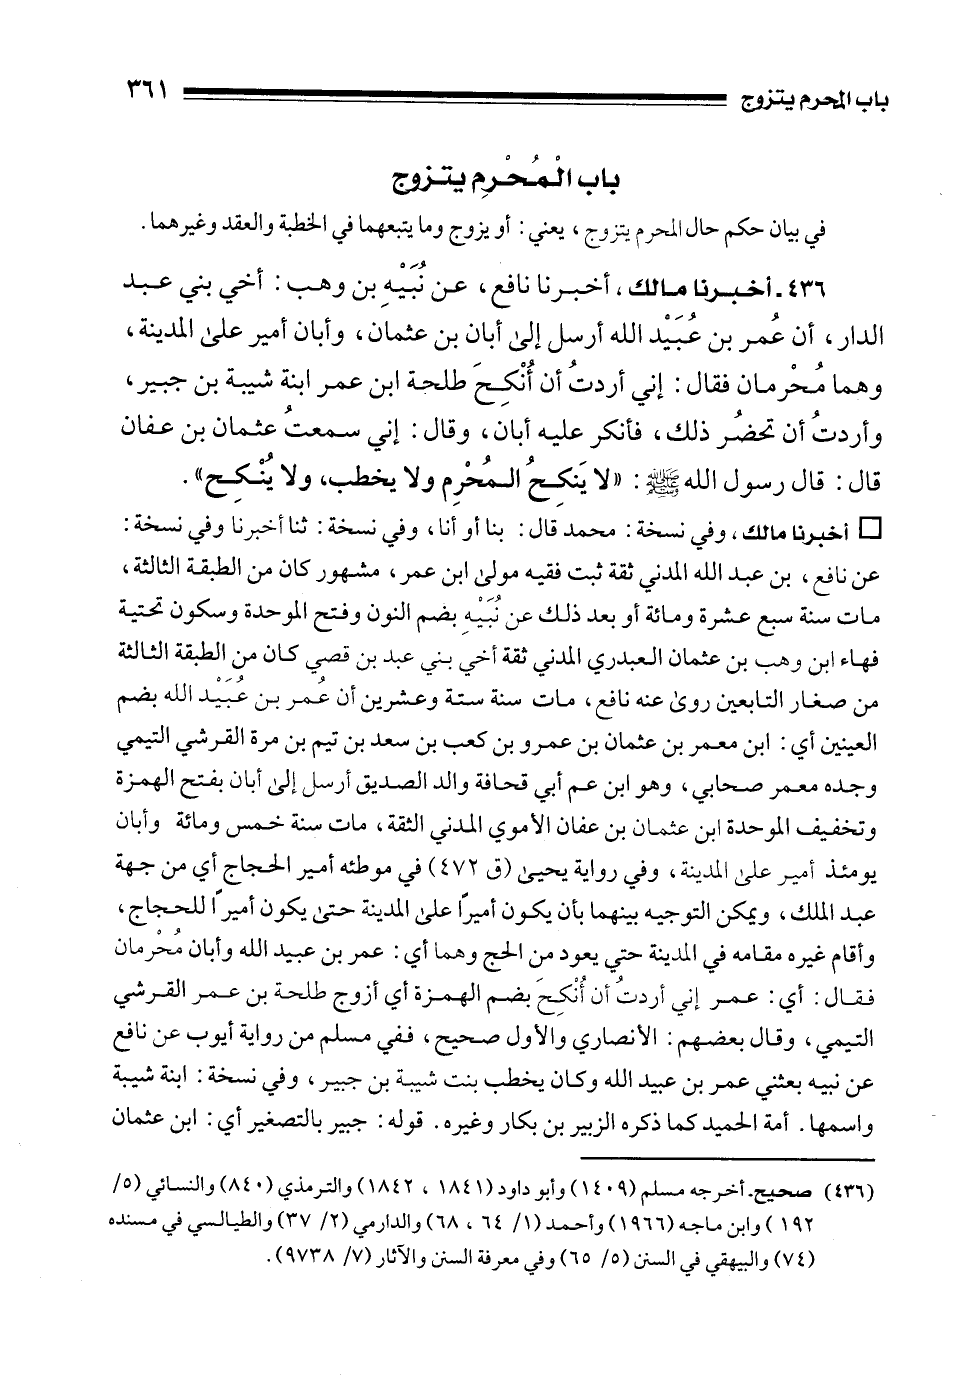 باب المحرم يتزوج ٣٦١
باب الْمُحْرِم يتزوج
في بيان حكم حال المحرم يتزوج، يعني: أو يزوج وما يتبعهما في الخطبة والعقد وغيرهما.
٤٣٦ـ أخبرنا مالك، أخبرنا نافع، عن نُبَيْهِ بن وهب: أخي بني عبد
الدار، أن عُمر بن عُبَيْد الله أرسل إلى أبان بن عثمان، وأبان أمير على المدينة،
وهما مُحْرمان فقال: إني أردتُ أن أُنْكِحَ طلحة ابن عمر ابنة شيبة بن جبير،
وأردتُ أن تحضُر ذلك، فأنكر عليه أبان، وقال: إني سمعتُ عثمان بن عفان
قال: قال رسول الله ﷺ: «لا يَنكِحُ المُحْرِم ولا يخطب، ولا يُنْكِح».
□ أخبرنا مالك، وفي نسخة: محمد قال: بنا أو أنا، وفي نسخة: ثنا أخبرنا وفي نسخة:
عن نافع، بن عبد الله المدني ثقة ثبت فقيه مولى ابن عمر، مشهور كان من الطبقة الثالثة،
مات سنة سبع عشرة ومائة أو بعد ذلك عن نُبَيْهِ بضم النون وفتح الموحدة وسكون تحتية
فهاء ابن وهب بن عثمان العبدري المدني ثقة أخي بني عبد بن قصي كان من الطبقة الثالثة
من صغار التابعين روى عنه نافع، مات سنة ستة وعشرين أن عُمر بن عُبَيْد الله بضم
العينين أي: ابن معمر بن عثمان بن عمرو بن كعب بن سعد بن تيم بن مرة القرشي التيمي
وجده معمر صحابي، وهو ابن عم أبي قحافة والد الصديق أرسل إلى أبان بفتح الهمزة
وتخفيف الموحدة ابن عثمان بن عفان الأموي المدني الثقة، مات سنة خمس ومائة وأبان
يومئذ أمير على المدينة، وفي رواية يحيى (ق ٤٧٢) في موطئه أمير الحجاج أي من جهة
عبد الملك، ويمكن التوجيه بينهما بأن يكون أميرًا على المدينة حتى يكون أميرًا للحجاج،
وأقام غيره مقامه في المدينة حتي يعود من الحج وهما أي: عمر بن عبيد الله وأبان مُحْرمان
فقال: أي: عمر إني أردتُ أن أُنْكِحَ بضم الهمزة أي أزوج طلحة بن عمر القرشي
التيمي، وقال بعضهم: الأنصاري والأول صحيح، ففي مسلم من رواية أيوب عن نافع
عن نبيه بعثني عمر بن عبيد الله وكان يخطب بنت شيبة بن جبير، وفي نسخة: ابنة شيبة
واسمها. أمة الحميد كما ذكره الزبير بن بكار وغيره. قوله: جبير بالتصغير أي: ابن عثمان
(٤٣٦) صحيح. أخرجه مسلم (١٤٠٩) وأبو داود (١٨٤١ ، ١٨٤٢) والترمذي (٨٤٠) والنسائي (٥/
١٩٢ ) وابن ماجه (١٩٦٦) وأحمد (١/ ٦٤ ، ٦٨) والدارمي (٢/ ٣٧) والطيالسي في مسنده
(٧٤) والبيهقي في السنن (٥/ ٦٥) وفي معرفة السنن والآثار (٧/ ٩٧٣٨).